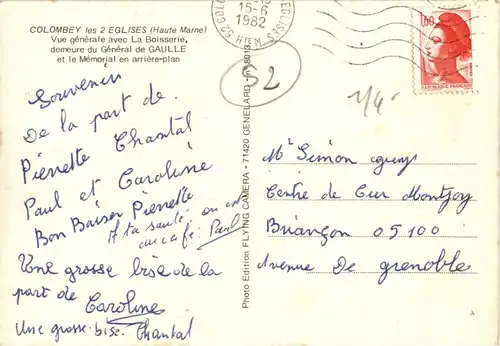 COLOMBEY les 2 EGLISES (Haute Marne)
Vue générale avec La Boisserie,
demeure du Général de GAULLE
et le Mémorial en arrière-plan
Souvenir
De la part de
Pierrette Chantal
Paul et Caroline
Bon Baiser Pierrette
A ta santé on est
au café. Paul
Une grosse bise de la
part de Caroline
Une grosse bise. Chantal
Photo Edition FLYING CAMERA - 71420 GENELARD - n° 8013
15-6
1982
52
EGLISES
HTE M
52
1,60
REPUBLIQUE FRANÇAISE
1/4
Mr Simon guy
Centre de Cur Montjoy
Briançon 05100
Avenue De grenoble